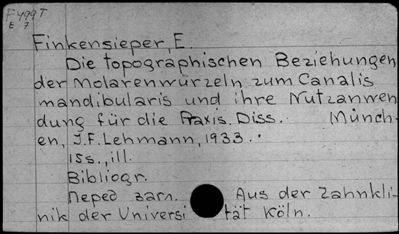 F499T
E 7
Finkensieper, E.
Die topographischen Beziehungen
der Molarenwurzeln zum Canalis
mandibularis und ihre Nutzanwen
dung für die Praxis. Diss. Münch-
en, J.F. Lehmann, 1933.
15s., ill.
Bibliogr.
Перед загл. Aus der Zahnkli-
nik der Universität Köln.